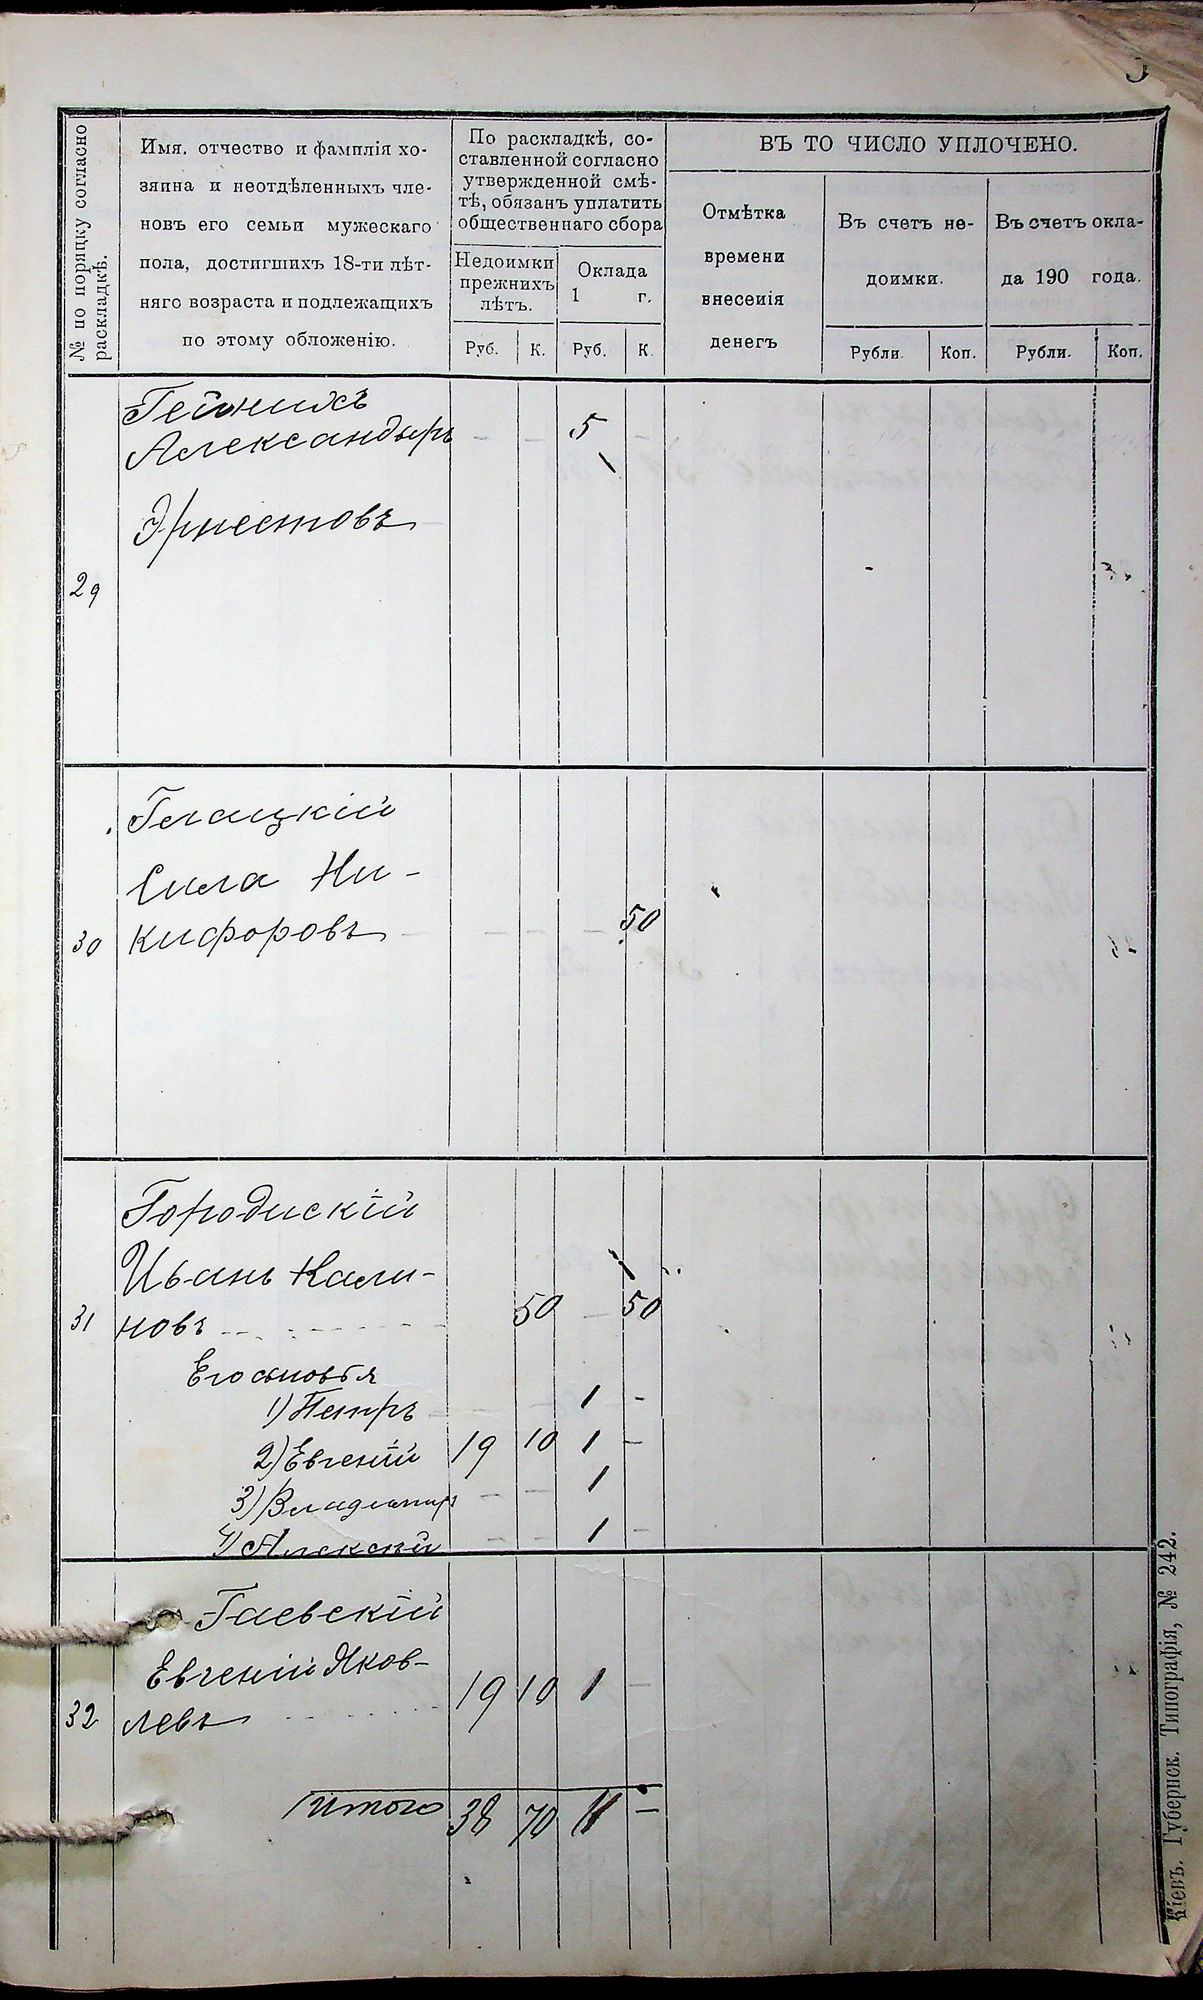 № по порядку согласно раскладкѣ.
Имя, отчество и фамилія хо-
зяина и неотдѣленныхъ чле-
новъ его семьи мужескаго
пола, достигшихъ 18-ти лѣт-
няго возраста и подлежащихъ
по этому обложенію.
По раскладкѣ, со-
ставленной согласно
утвержденной смѣ-
тѣ, обязанъ уплатить
общественнаго сбора
Недоимки
прежнихъ
лѣтъ.
Оклада
1 г.
Руб. К. Руб. К.
ВЪ ТО ЧИСЛО УПЛОЧЕНО.
Отмѣтка
времени
внесенія
денегъ
Въ счетъ не-
доимки.
Въ счетъ окла-
да 190 года.
Рубли. Коп. Рубли. Коп.
Александыръ – – 5 –
Эрнестовъ
29
Сила Ни-
30 кифоровъ – – – – 50
Городискій
Иванъ Кали-
31 новъ 50 – 50
Его сыновья
1) Петръ 1 –
2) Евгеній 19 10 1 –
3) Владиміръ – – 1
4) Алексѣй – – 1 –
Гаевскій
Евгеній Яков-
32 левъ 19 10 1 –
Итого 38 70 11 –
Кіевъ. Губернск. Типографія, № 242.